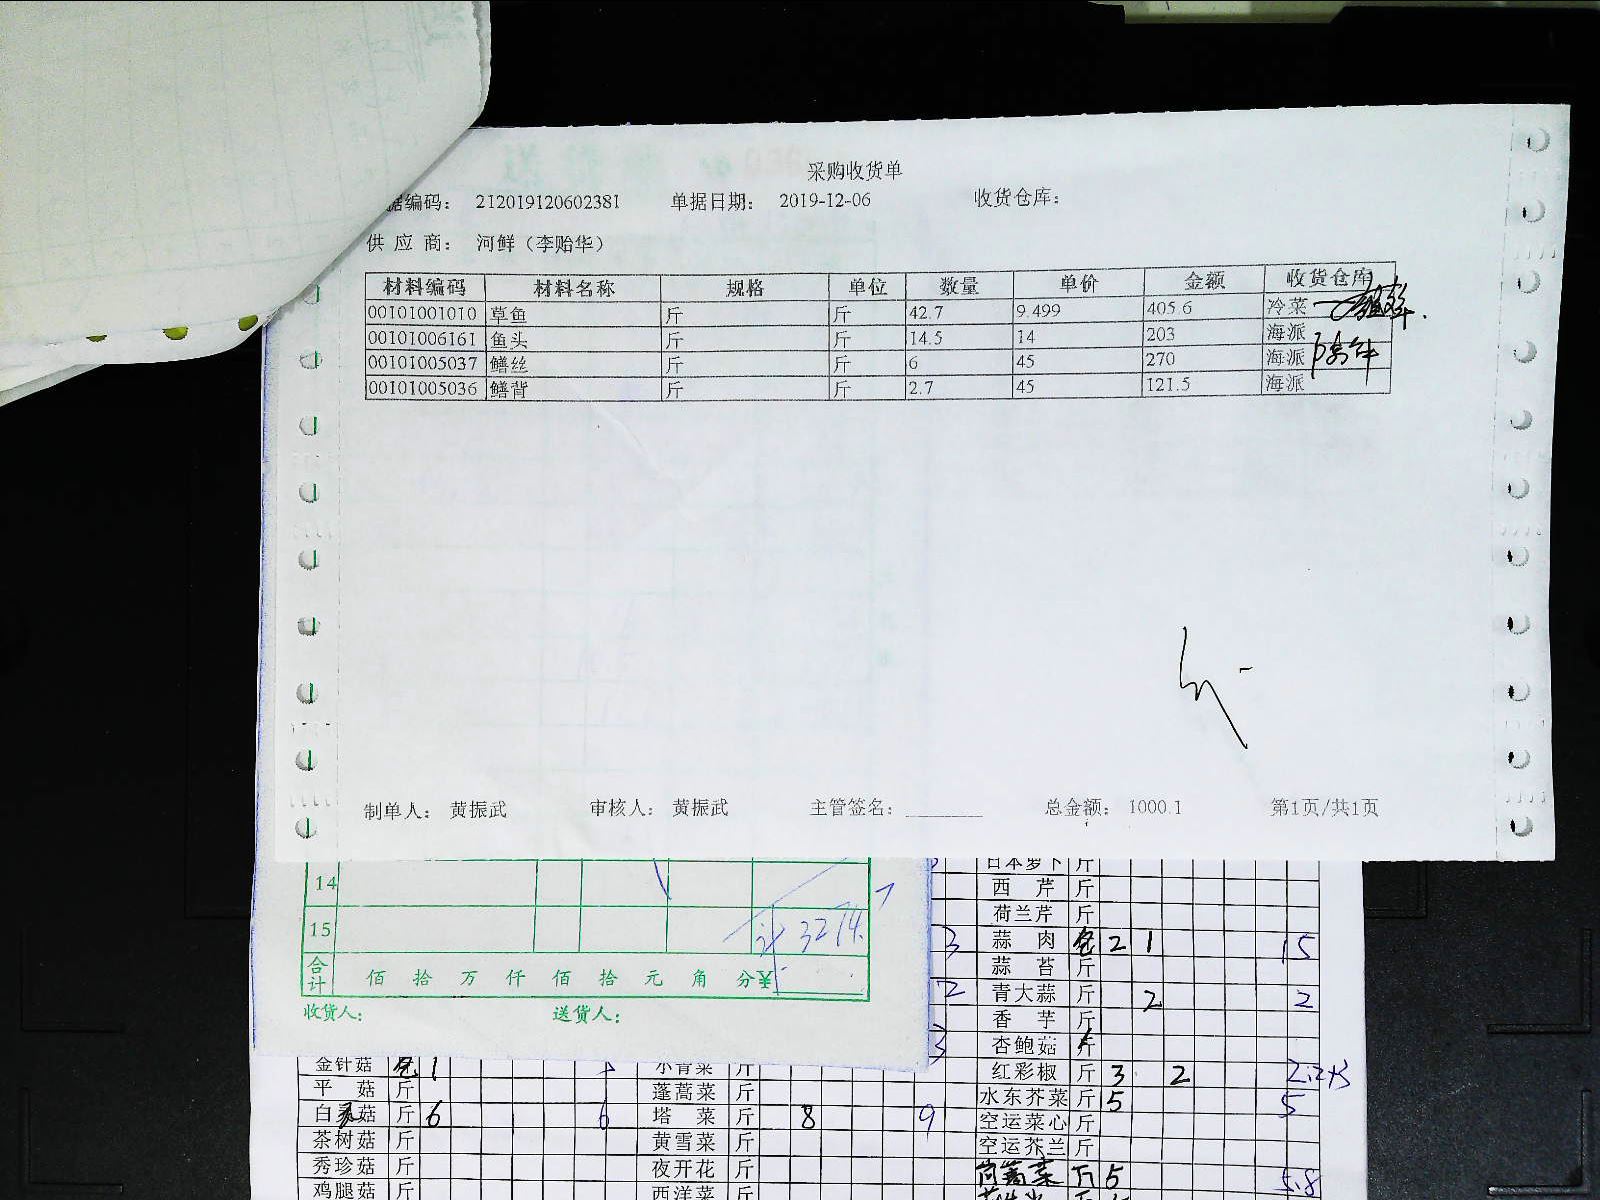 采购收货单
据编码： 212019120602381 单据日期： 2019-12-06 收货仓库：
供 应 商： 河鲜（李贻华）
材料编码 材料名称 规格 单位 数量 单价 金额 收货仓库
00101001010 草鱼 斤 斤 42.7 9.499 405.6 冷菜
00101006161 鱼头 斤 斤 14.5 14 203 海派
00101005037 鳝丝 斤 斤 6 45 270 海派
00101005036 鳝背 斤 斤 2.7 45 121.5 海派
制单人： 黄振武 审核人： 黄振武 主管签名： 总金额： 1000.1 第1页/共1页
14
15 3274.
合计 佰 拾 万 仟 佰 拾 元 角 分¥
收货人： 送货人：
日本萝卜 斤
西 芹 斤
荷兰芹 斤
3 蒜 肉 包 2 1 15
蒜 苔 斤
2 青大蒜 斤 2 2
香 芋 斤
3 杏鲍菇 斤
金针菇 包 1 小青菜 斤 红彩椒 斤 3 2 2.2+3
平 菇 斤 蓬蒿菜 斤 水东芥菜 斤 5 5
白灵菇 斤 6 6 塔 菜 斤 8 9 空运菜心 斤
茶树菇 斤 黄雪菜 斤 空运芥兰 斤
秀珍菇 斤 夜开花 斤 茼蒿菜 斤 5 5.8
鸡腿菇 斤 西洋菜 斤